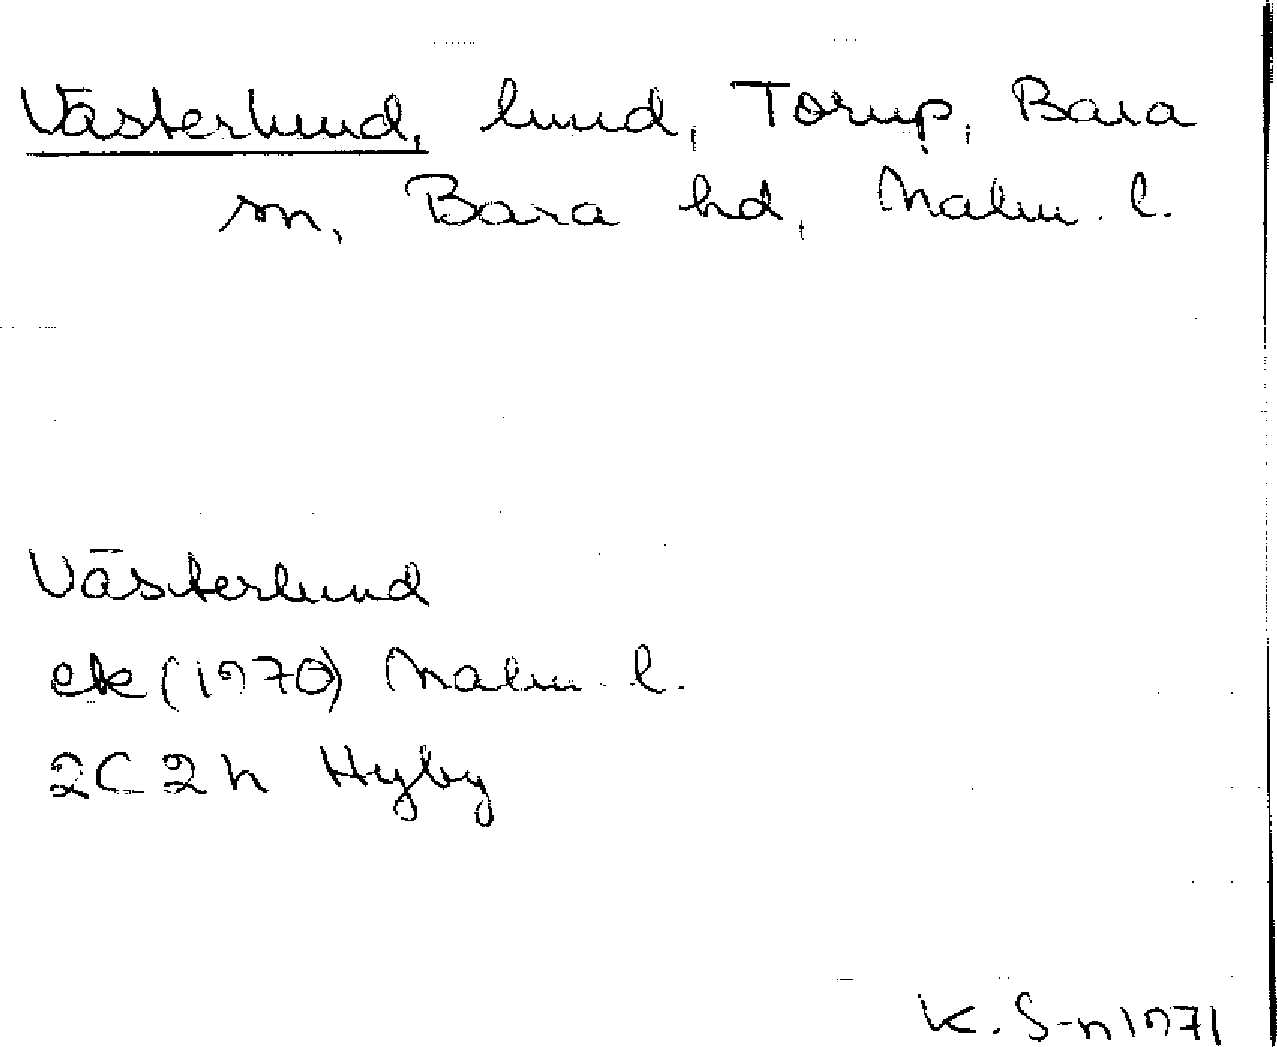 Västerlund, lund, Torup, Bara
sn, Bara hd, Malm. l.
Västerlund
ek (1970) Malm. l.
2C 2h Hyby
K. S-n 1971